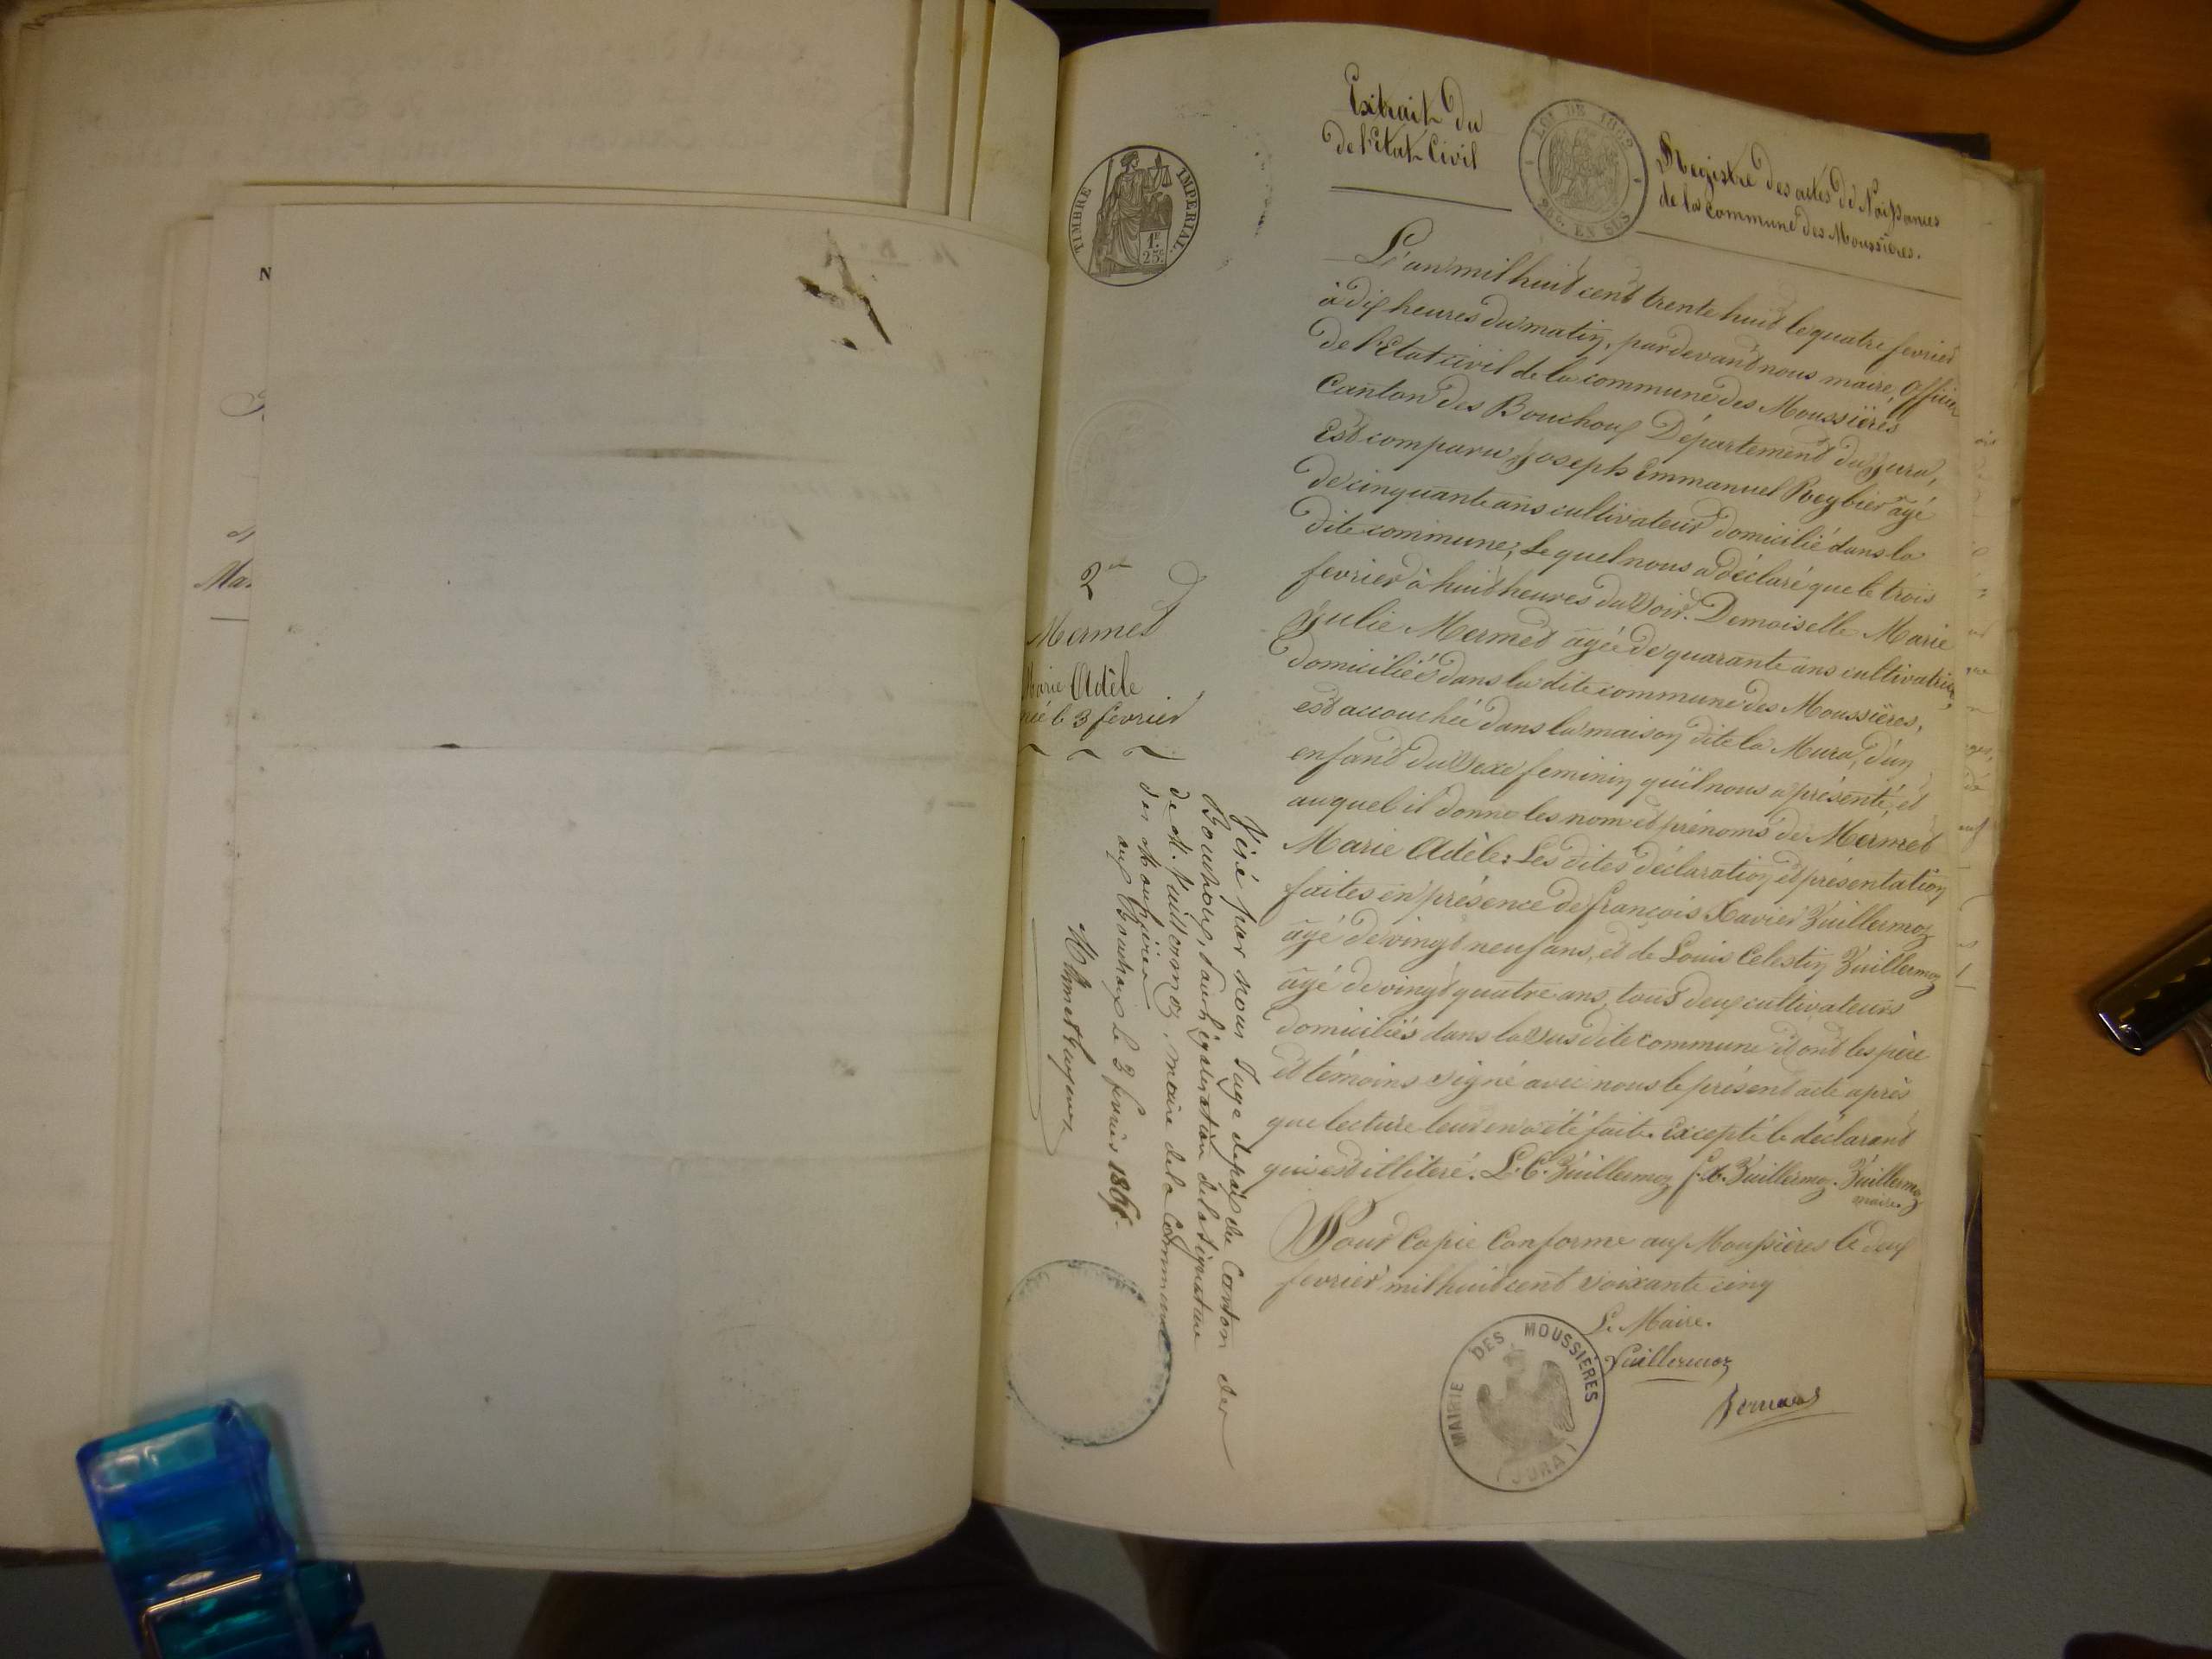 N
Mar
TIMBRE IMPERIAL.
1F.
25c.
Extrait du
de l'Etat Civil
LOI DE 1862
EN SUS
Registre des actes de Naissances
de la Commune des Moussières.
L'an mil huit cent trente huit le quatre fevrier
à dix heures du matin, pardevant nous maire, officier
de l'Etat civil de la commune des Moussières
Canton des Bouchoux Département du Jura,
Est comparu Joseph Emmanuel Reybier âgé
de cinquante ans cultivateur domicilié dans la
dite commune, Lequel nous a déclaré que le trois
fevrier à huit heures du soir. Demoiselle Marie
Julie Mermet âgée de quarante ans cultivatrice,
domiciliée dans la dite commune des Moussières,
est accouchée dans la maison dite la Mura, d'un
enfant du sexe feminin qu'il nous a présenté, et
auquel il donne les nom et prénoms de Mermet
Marie Adèle: Les dites déclaration et présentation
faites en présence de françois Xavier Vuillermoz
âgé de vingt neuf ans, et de Louis Celestin Vuillermoz
âgé de vingt quatre ans, tous deux cultivateurs
domiciliés dans la susdite commune et ont les père
et témoins signé avec nous le présent acte après
que lecture leur en a été faite. Excepté le déclarant
qui est illiteré. L.C. Vuillermoz f.x. Vuillermoz. Vuillermoz
maire.
Pour Copie Conforme aux Moussières le deux
fevrier mil huit cent soixante cinq
Le Maire.
Vuillermoz
MAIRIE DES MOUSSIÈRES
(JURA)
2
Mermet
Marie Adèle
née le 3 fevrier
Visé par nous Juge de paix du Canton des
Bouchoux, pour légalisation de la signature
de M. Vuillermoz, maire de la Commune
des Moussières
aux Bouchoux le 3 fevrier 1865.